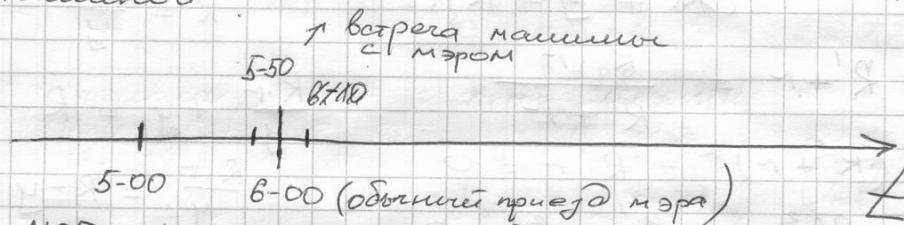 ↗ встреча машины
с мэром
5-50
5-00
6-00 (обычный приезд мэра)
t